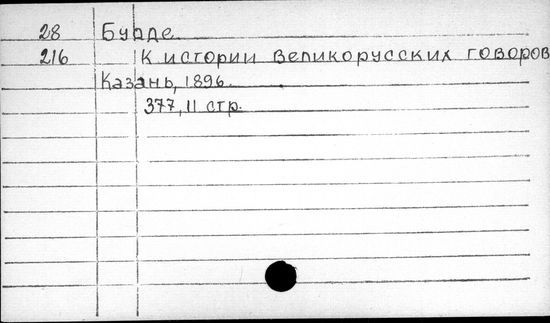 28 Будде
216 К истории великорусских говоров
Казань, 1896
377, II стр.